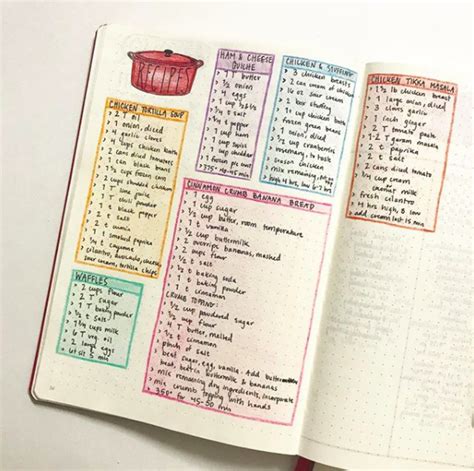 RECIPES
CHICKEN TORTILLA SOUP
> 2 T oil
> 1 onion, diced
> 4 garlic cloves
> 4 cups chicken broth
> 2 cans diced tomatoes
> 1 can black beans
> 1½ cups frozen corn
> 2 cups shredded chicken
> 1 T lime juice
> 1 T chili powder
> 1 t black pepper
> 2 t salt
> 2 t cumin
> 1 t smoked paprika
> ¼ t cayenne
> cilantro, avocado, cheese,
sour cream, tortilla chips
WAFFLES
> 2 cups flour
> 2 T sugar
> 1 T baking powder
> ½ t salt
> 1¾ cups milk
> 6 T veg. oil
> 2 large eggs
HAM & CHEESE
QUICHE
> 1 T butter
> ½ onion
> 4 eggs
> 1 cup
> 1 cup ham
> 1 cup swiss
> 1 cup cheddar
> 1 frozen pie crust
> 375° 40-45 min
CHICKEN & STUFFING
> 3 chicken breasts
> 2 can cream of chicken
> 16 oz sour cream
> 2 box stuffing
> 1 cup chicken broth
> frozen green beans
> 1 onion, diced
> 1 cup cranberries
> rosemary, to taste
> season chicken
> mix remaining
> high 4 hrs, low 6-7 hrs
CINNAMON CRUMB BANANA BREAD
> 1 egg
> 1 cup sugar
> ½ cup butter, room temperature
> 1 t vanilla
> ½ cup buttermilk
> 2 overripe bananas, mashed
> 2 cups flour
> ½ t salt
> ½ t baking soda
> 1 t baking powder
> 1 t cinnamon
CRUMB TOPPING:
> ½ cup powdered sugar
> ½ cup flour
> 4 T butter, melted
> ½ t cinnamon
> pinch of salt
> beat sugar, egg, vanilla. Add butter
> beat in buttermilk & bananas
> mix remaining dry ingredients, incorporate
> mix crumb topping with hands
> 350° for 45-50 min
CHICKEN TIKKA MASALA
> 1½ lb chicken breast
> 1 large onion, diced
> 3 cloves garlic
> 1 inch ginger
> 2 T tomato paste
> 1-2 T garam masala
> 2 t paprika
> 2 t salt
> 1 can diced tomatoes
> ¾ cup cream
milk
> fresh cilantro
> rice
> 4 hrs high, 8 low
> add cream last 15 min